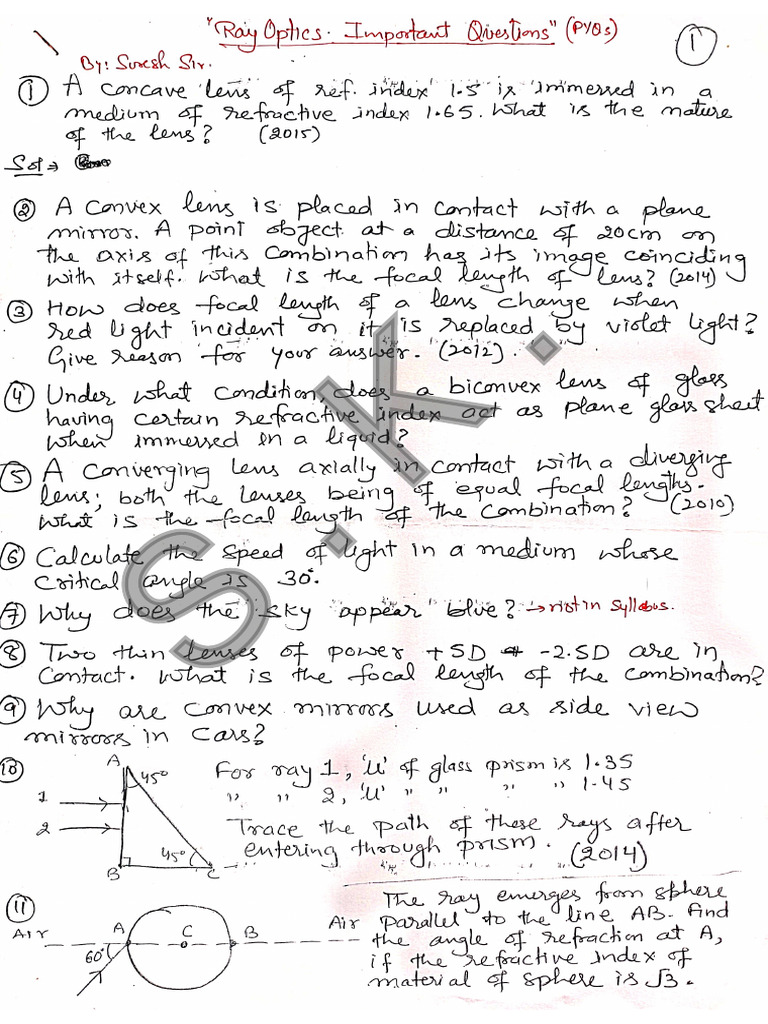 "Ray Optics. Important Questions" (PYQs)
1
By: Suresh Sir.
① A concave lens of ref. index 1.5 is immersed in a
medium of refractive index 1.65. What is the nature
of the lens? (2015)
Sol ⇒
② A convex lens is placed in contact with a plane
mirror. A point object at a distance of 20cm on
the axis of this combination has its image coinciding
with itself. What is the focal length of lens? (2014)
③ How does focal length of a lens change when
red light incident on it is replaced by violet light?
Give reason for your answer. (2012).
④ Under what condition, does a biconvex lens of glass
having certain refractive index act as plane glass sheet
when immersed in a liquid?
⑤ A converging lens axially in contact with a diverging
lens; both the lenses being of equal focal lengths.
What is the focal length of the combination? (2010)
⑥ Calculate the speed of light in a medium whose
critical angle is 30°.
⑦ Why does the sky appear blue? → not in syllabus.
⑧ Two thin lenses of power +5D & -2.5D are in
contact. What is the focal length of the combination?
⑨ Why are convex mirrors used as side view
mirrors in cars?
⑩ A 45° For ray 1, 'μ' of glass prism is 1.35
1 " " 2, 'μ' " " " " 1.45
2 Trace the path of these rays after
45° entering through prism. (2014)
B C
⑪ The ray emerges from sphere
Air A C B Air parallel to the line AB. Find
60° the angle of refraction at A,
if the refractive index of
material of sphere is √3.
S.K.